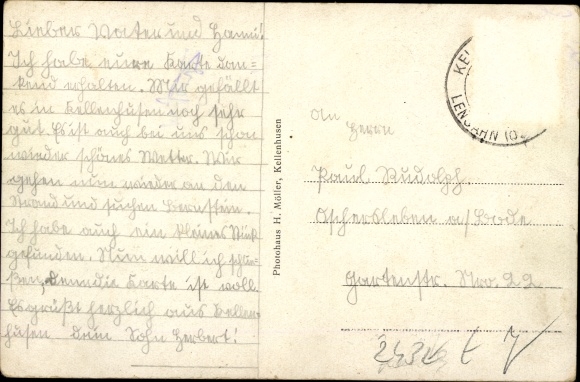 Lieber Vater und Hanni!
Ich habe eure Karte dan-
kend erhalten. Mir gefällt
es in Kellenhusen noch sehr
gut. Es ist auch bei uns schon
wieder schönes Wetter. Wir
gehen nun wieder an den
Strand und suchen Bernstein.
Ich habe auch ein kleines Stück
gefunden. Nun will ich schlie-
ßen, denn die Karte ist voll.
Es grüßt herzlich aus Kellen-
husen Dein Sohn Herbert!
Photohaus H. Möller, Kellenhusen
KEL
LENSAHN
An
Herrn
Paul Rudolph
Oschersleben a/Bode
Gartenstr. Nro. 22